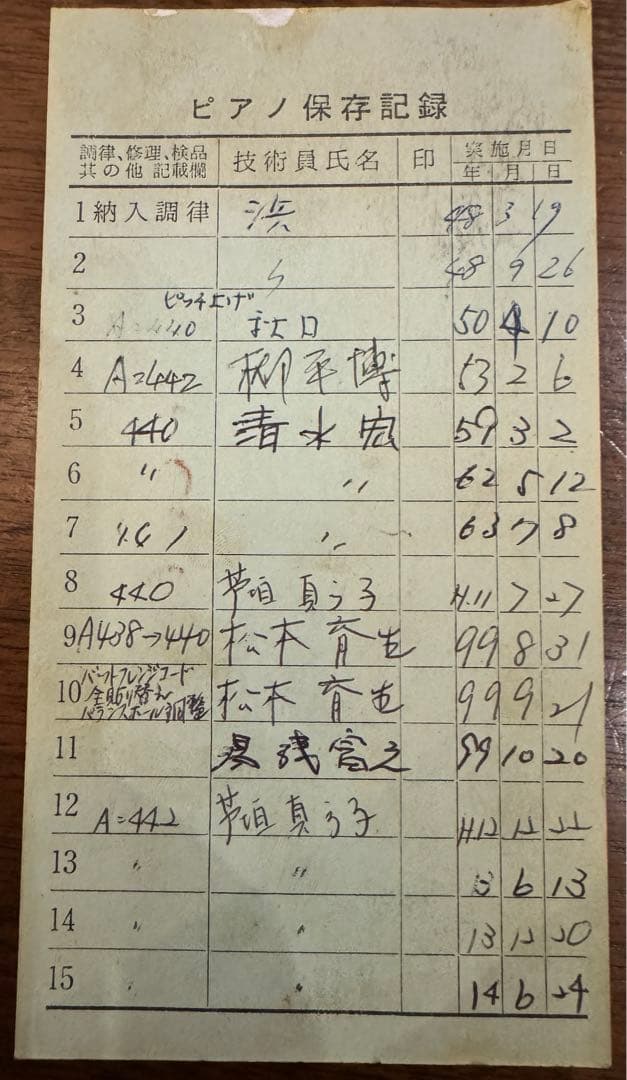 ピアノ保存記録
調律、修理、検品
其の他記載欄 技術員氏名 印 実施月日
年 月 日
1 納入調律 浜 48 3 19
2 〃 48 9 26
ピッチ上げ
3 A=440 秋口 50 4 10
4 A=442 柳平博 53 2 6
5 440 清水宏 59 3 2
6 〃 〃 62 5 12
7 〃 63 7 8
8 440 真 子 H.11 7 27
9 A438→440 松本育生 99 8 31
バットフレンジコード
10 全貼り替え 松本育生 99 9 21
バランスホール調整
11 99 10 20
12 A=442 真 子 H12 12 22
13 〃 〃 13 6 13
14 〃 〃 13 12 20
15 〃 〃 14 6 24